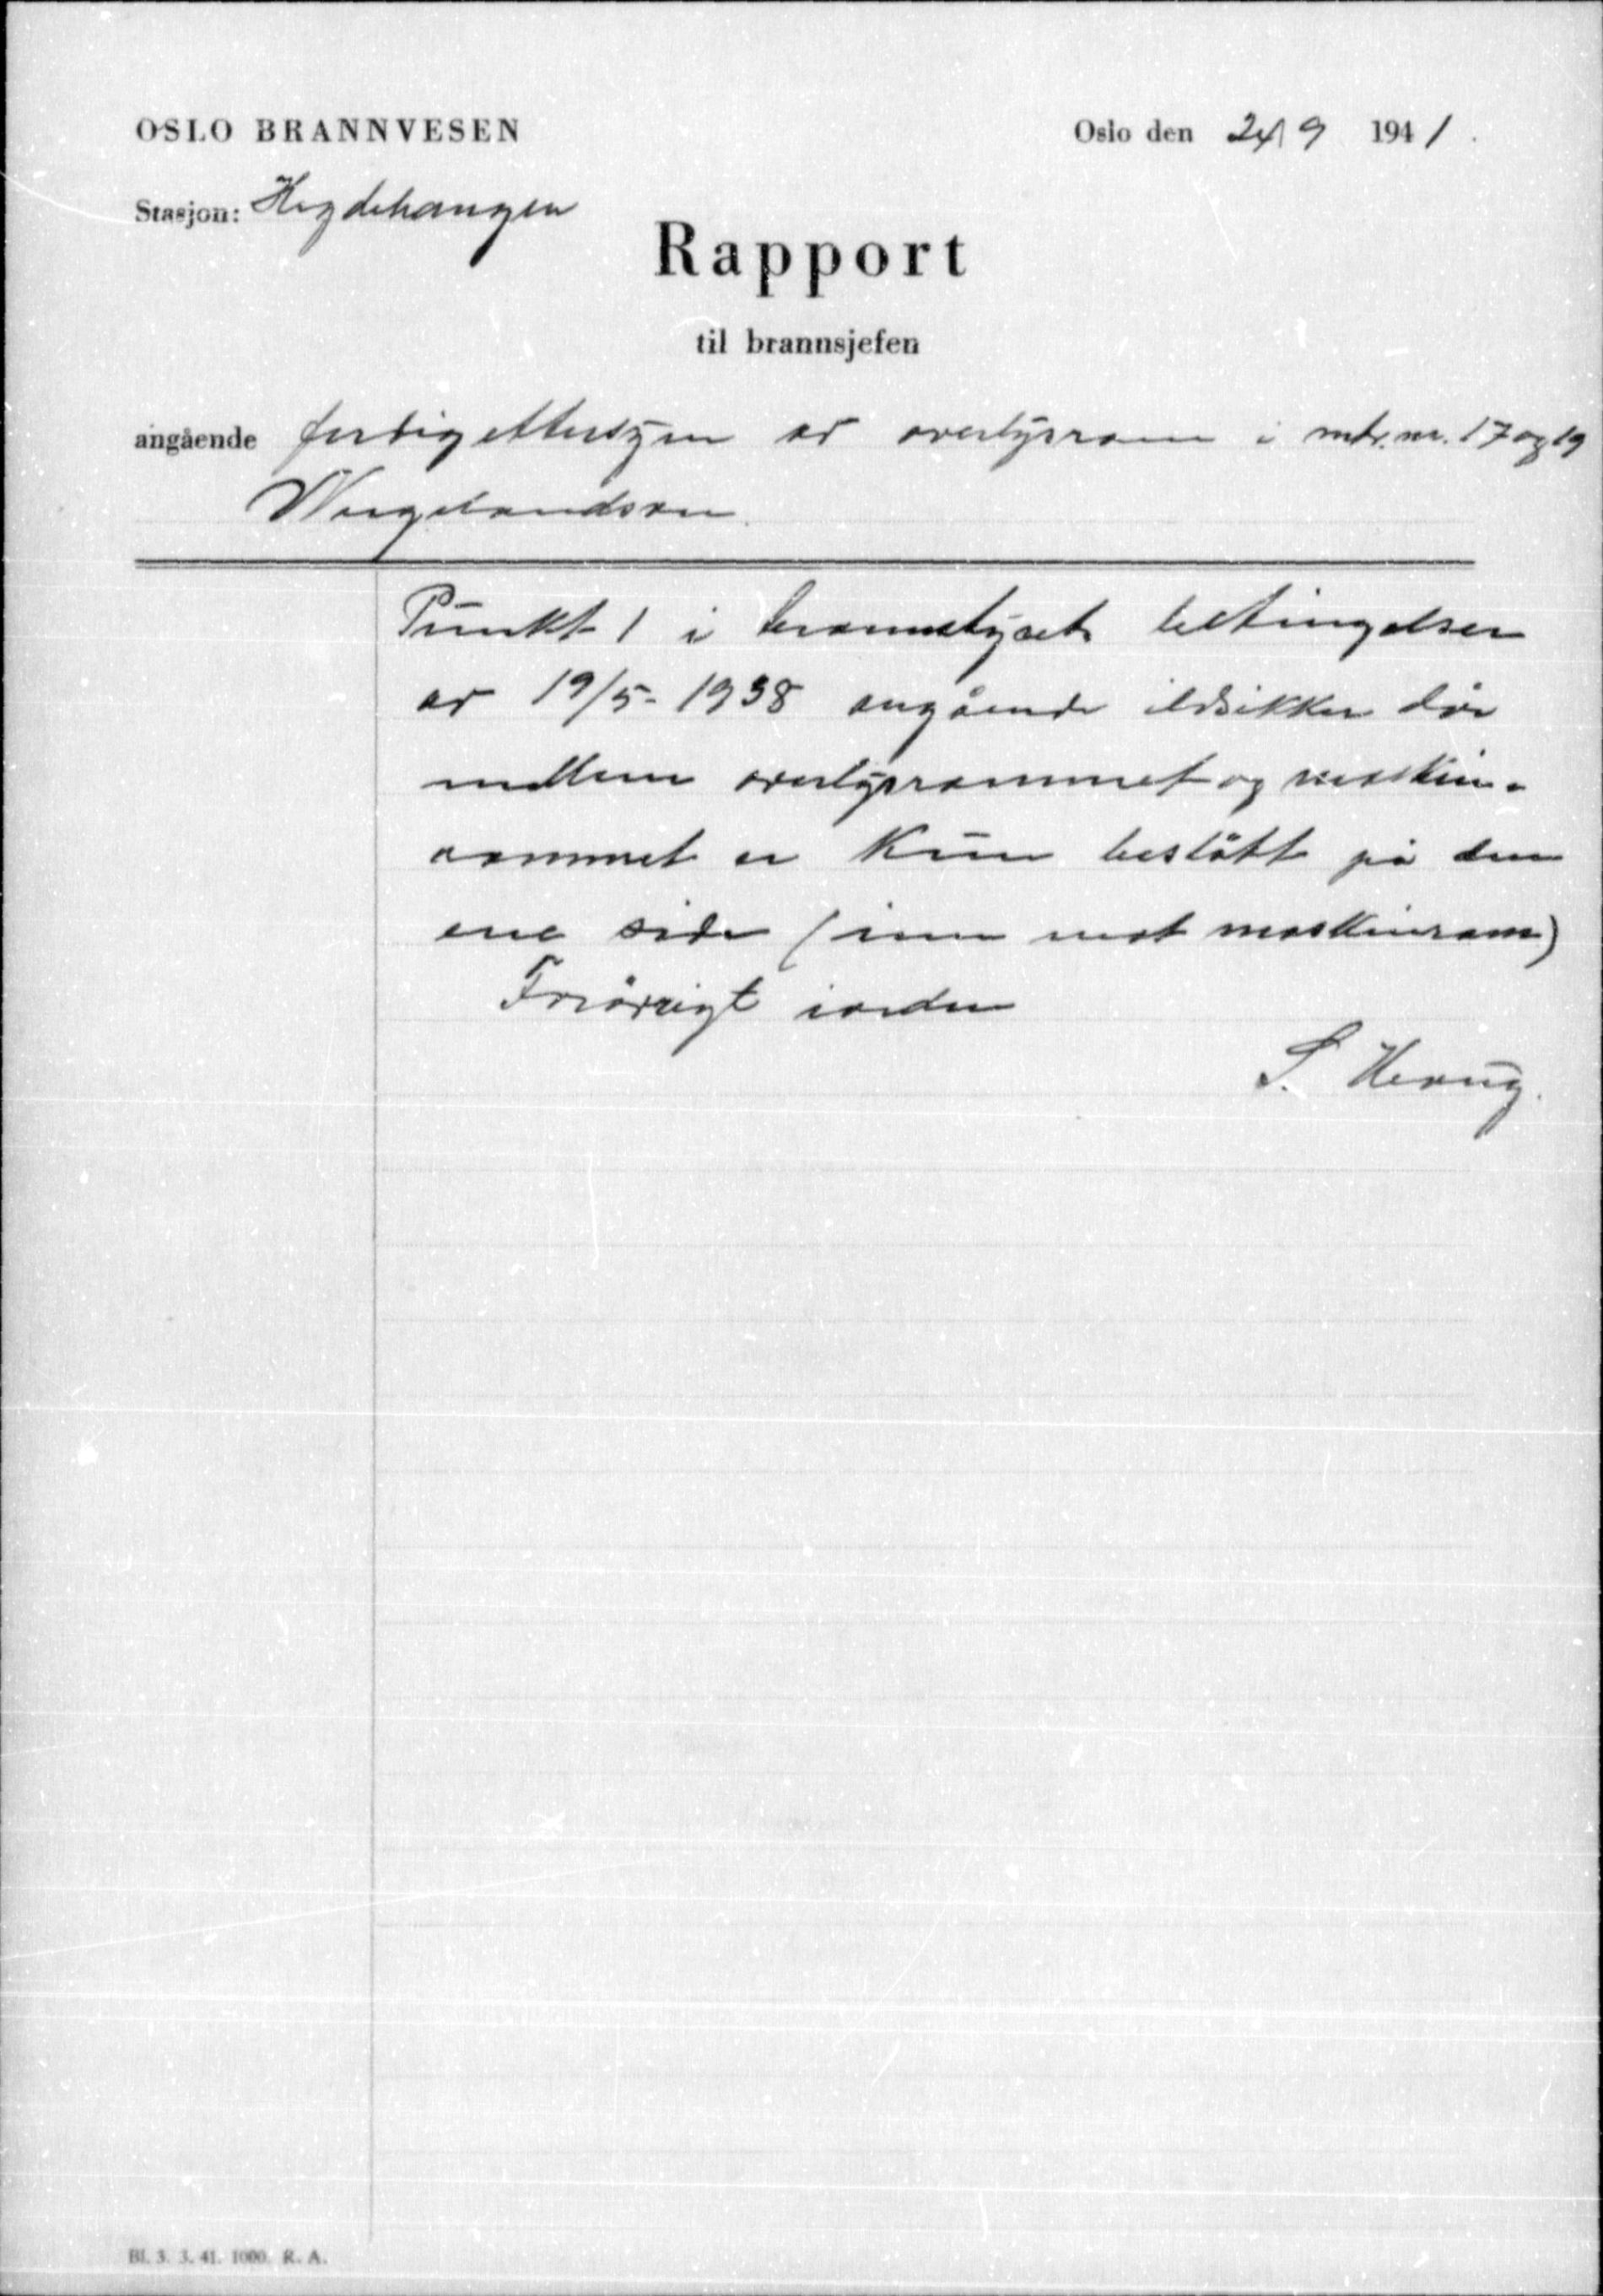 OSLO BRANNVESEN
Oslo den 24/9 1941.
Stasjon: Hegdehaugen
Rapport
til brannsjefen
angående ferdigettersyn av overlysrom i mtr. nr. 17 og 19
Wergelandsvn.
Punkt 1 i brannstyrets betingelser
av 19/5- 1938 angående ildsikker dör
mellem overlysrommet og maskin-
rommet er kun beslått på den
ene side (inn mot maskinrom)
Forövrigt iorden
S.
Bl. 3. 3. 41. 1000. R. A.